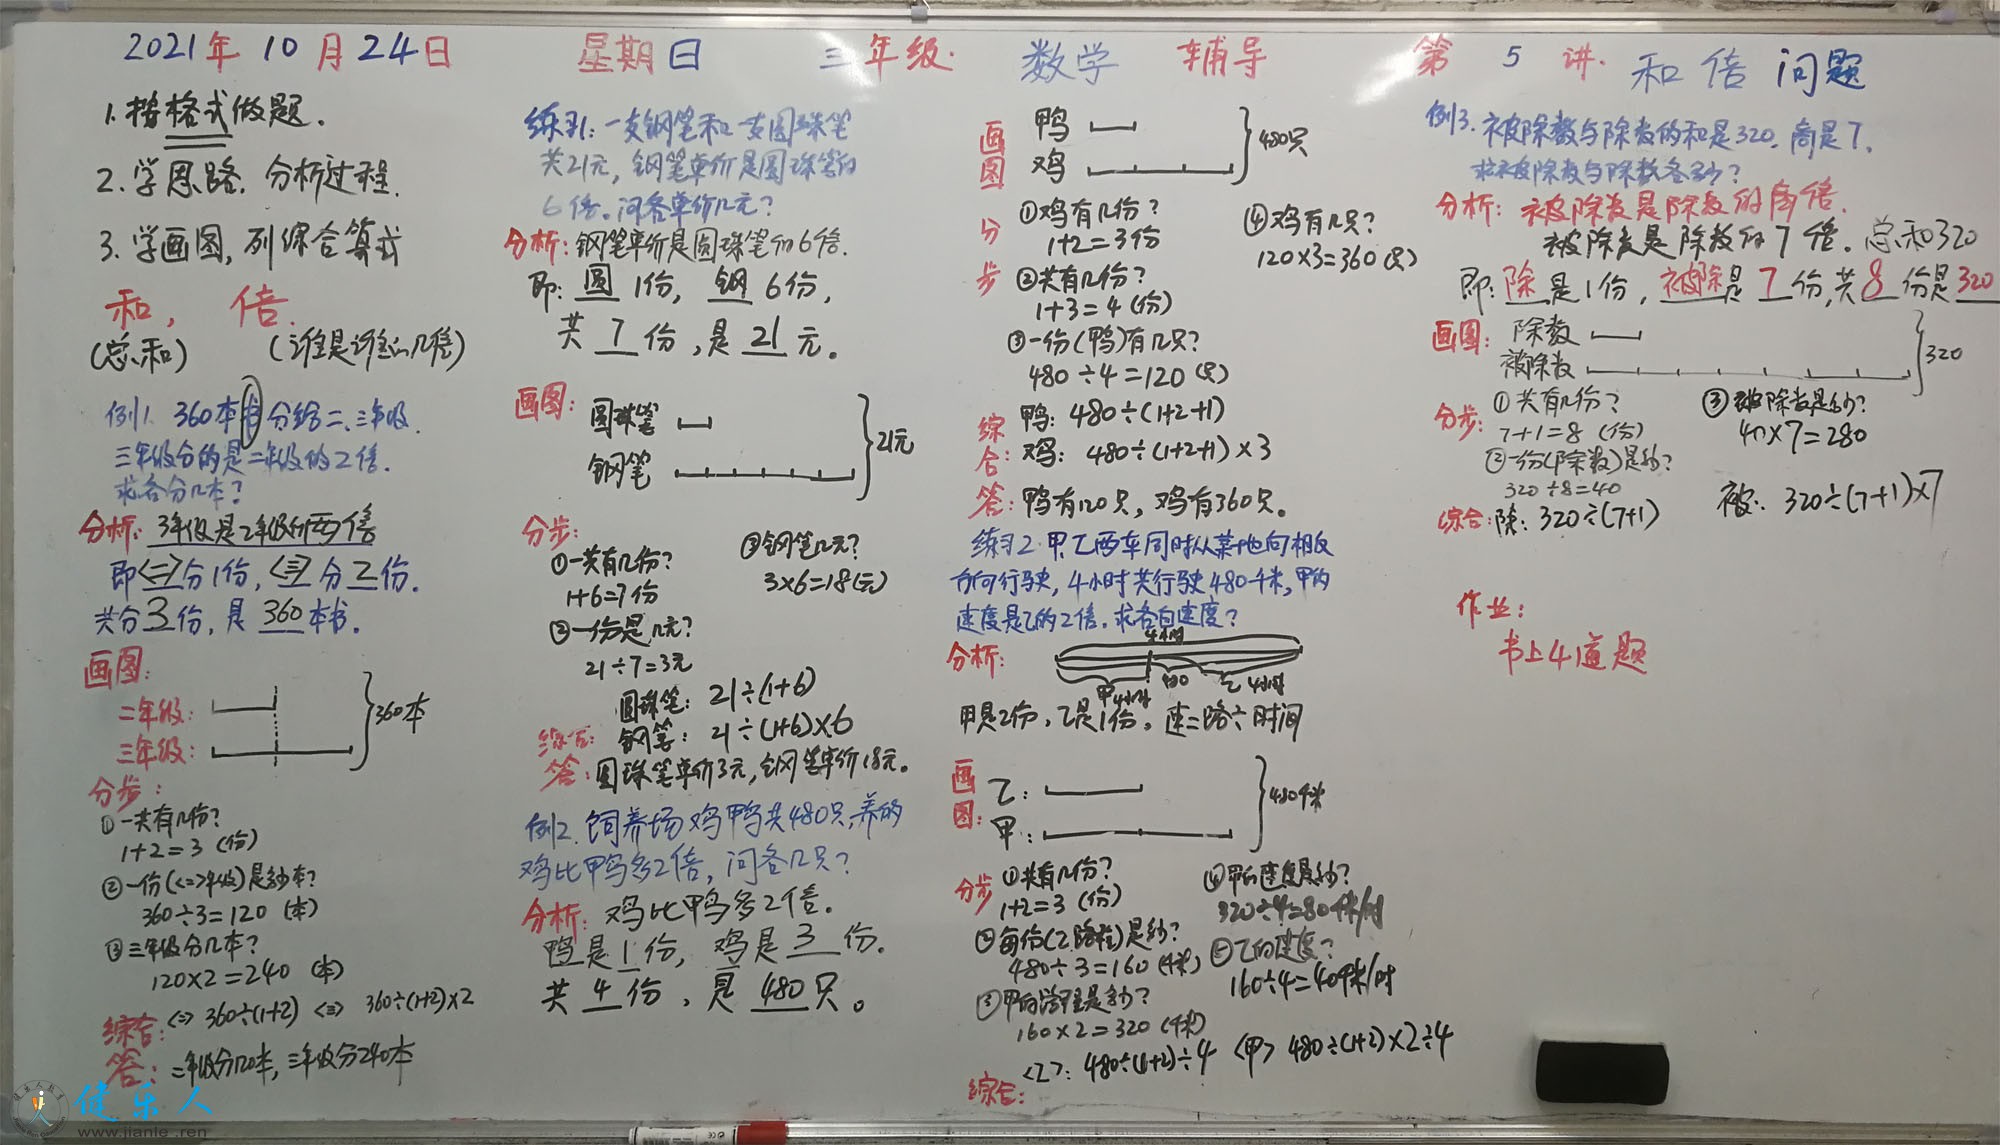 2021年 10月24日 星期日 三年级· 数学 辅导 第 5 讲· 和倍问题
1.按格式做题.
2.学思路.分析过程.
3.学画图,列综合算式
和, 倍.
(总和) (谁是谁的几倍)
例1. 360本书分给二、三年级.
三年级分的是二年级的2倍.
求各分几本?
分析: 3年级是2年级的两倍
即<二>分1份, <三>分2份.
共分3份, 是360本书.
画图:
二年级:
三年级:
360本
分步:
①一共有几份?
1+2=3 (份)
②一份(<二>年级)是多少本?
360÷3=120 (本)
③三年级分几本?
120×2=240 (本)
综合: <二> 360÷(1+2) <三> 360÷(1+2)×2
答: 二年级分120本, 三年级分240本
练习1: 一支钢笔和一支圆珠笔
共21元, 钢笔单价是圆珠笔的
6倍。问各单价几元?
分析: 钢笔单价是圆珠笔的6倍.
即: 圆 1份, 钢 6份,
共 7 份, 是 21 元。
画图: 圆珠笔
钢笔
21元
分步:
①一共有几份?
1+6=7份
②一份是几元?
21÷7=3元
③钢笔几元?
3×6=18(元)
圆珠笔: 21÷(1+6)
综合: 钢笔: 21÷(1+6)×6
答: 圆珠笔单价3元, 钢笔单价18元。
例2. 饲养场鸡鸭共480只,养的
鸡比鸭多2倍, 问各几只?
分析: 鸡比鸭多2倍.
鸭是1份, 鸡是3份.
共 4 份, 是 480只。
画图
鸭
鸡
480只
分步
①鸡有几份?
1+2=3份
②共有几份?
1+3=4 (份)
③一份(鸭)有几只?
480÷4=120 (只)
④鸡有几只?
120×3=360(只)
综合:
鸭: 480÷(1+2+1)
鸡: 480÷(1+2+1)×3
答: 鸭有120只, 鸡有360只。
练习2. 甲乙两车同时从某地向相反
方向行驶, 4小时共行驶480千米, 甲的
速度是乙的2倍. 求各自速度?
分析:
4小时
甲 4小时 480 乙 4小时
甲是2份, 乙是1份, 速=路÷时间
画图:
乙:
甲:
480千米
分步
①共有几份?
1+2=3 (份)
②每份(乙路程)是多少?
480÷3=160 (千米)
③甲的路程是多少?
160×2=320 (千米)
④甲的速度是多少?
320÷4=80千米/时
⑤乙的速度?
160÷4=40千米/时
综合: <乙>: 480÷(1+2)÷4 <甲> 480÷(1+2)×2÷4
例3. 被除数与除数的和是320, 商是7,
求被除数与除数各多少?
分析: 被除数是除数的商倍.
被除数是除数的7倍. 总和320
即: 除是1份, 被除是 7 份,共 8 份是320
画图: 除数
被除数
320
分步:
①共有几份?
7+1=8 (份)
②一份(除数)是多少?
320÷8=40
③被除数是多少?
40×7=280
综合: 除: 320÷(7+1) 被: 320÷(7+1)×7
作业:
书上4道题
健乐人
www.jianle.ren